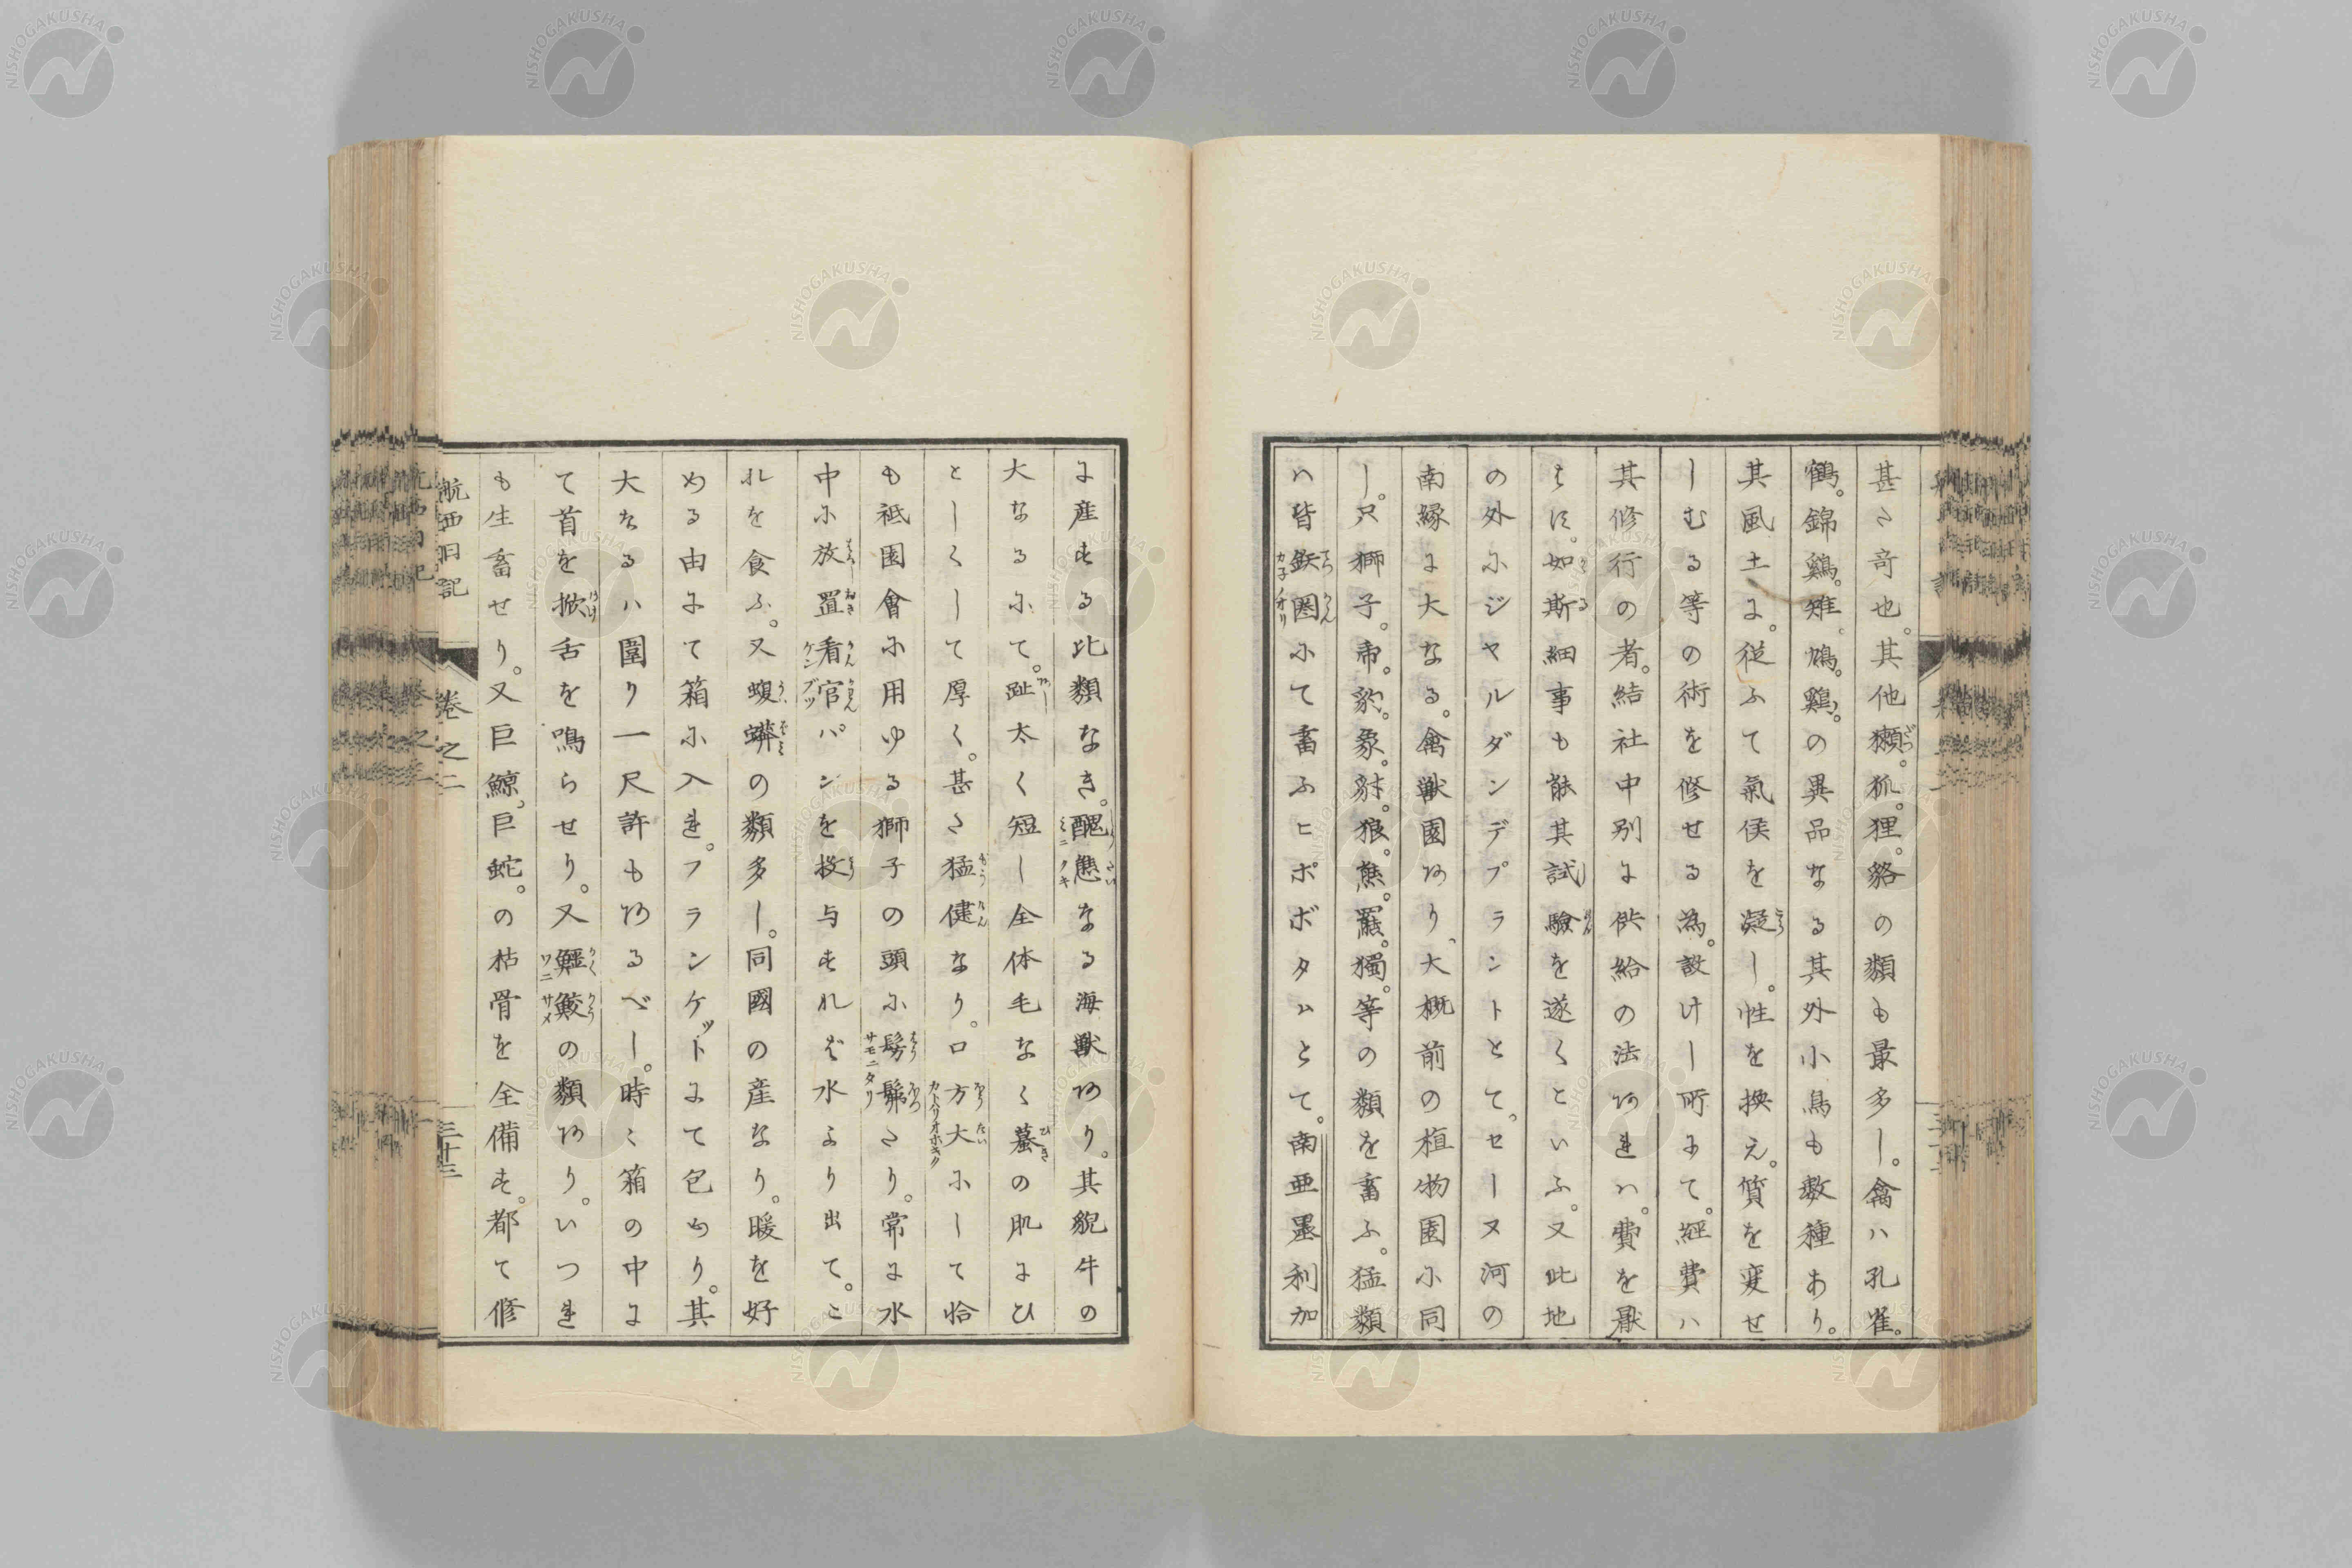 甚た奇也。其他獺。狐。狸。貉の類も最多し。禽ハ孔雀。
鶴。錦鷄。雉。鳩。鷄。の異品なる其外小鳥も數種あり。
其風土に。従ふて氣侯を凝し。性を換え。質を変せ
しむる等の術を修せる為。設けし所にて。經費ハ
其修行の者。結社中別に供給の法あれハ。費を厭
はす。如斯細事も能其試驗を遂くといふ。又此地
の外にジヤルダンデプラントとて。セーヌ河の
南縁に大なる。禽獣園あり、大概前の植物園に同
し。只獅子。帝。豹。象。豺。狼。熊。羆。獨。等の類を畜ふ。猛類
ハ皆鉄圏にて畜ふヒポボタムとて。南亜墨利加
に産する比類なき。醜態なる海獣あり。其貌牛の
大なるにて。趾太く短し全体毛なく蟇の肌にひ
としくして厚く。甚た猛健なり。口方大にして恰
も祇園會に用ゆる獅子の頭に髣髴たり。常に水
中に放置看官パンを投与すれば水より出て。こ
れを食ふ。又蝮蟒の類多し。同國の産なり。暖を好
める由にて箱に入れ。フランケットにて包めり。其
大なるハ圍り一尺許もあるべし。時々箱の中に
て首を掀舌を鳴らせり。又鱷鮫の類あり。いつれ
も生畜せり。又巨鯨。巨蛇。の枯骨を全備す。都て修
航西日記
卷之二
三十三
NISHOGAKUSHA